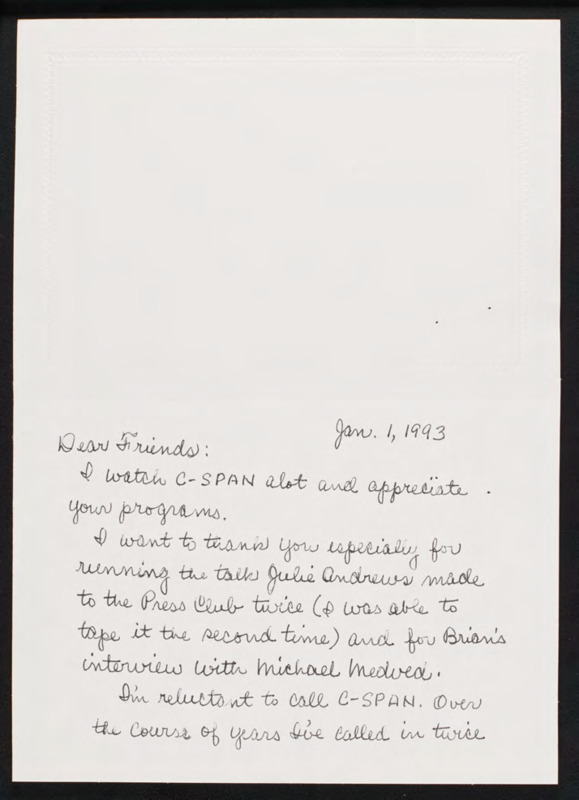 Jan. 1, 1993
Dear Friends:
I watch C-SPAN alot and appreciate
your programs.
I want to thank you especially for
running the talk Julie Andrews made
to the Press Club twice (I was able to
tape it the second time) and for Brian's
interview with Michael Medved.
I'm reluctant to call C-SPAN. Over
the course of years I've called in twice